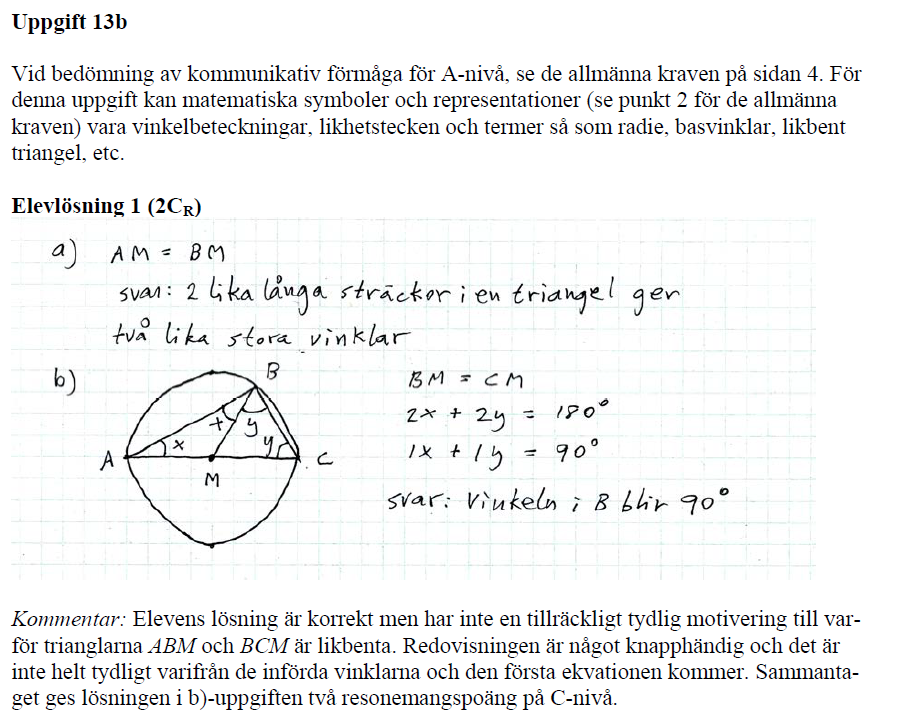 Uppgift 13b
Vid bedömning av kommunikativ förmåga för A-nivå, se de allmänna kraven på sidan 4. För
denna uppgift kan matematiska symboler och representationer (se punkt 2 för de allmänna
kraven) vara vinkelbeteckningar, likhetstecken och termer så som radie, basvinklar, likbent
triangel, etc.
Elevlösning 1 (2C_R)
a) AM = BM
svar: 2 lika långa sträckor i en triangel ger
två lika stora vinklar
b)
B
x y
x y
A C
M
BM = CM
2x + 2y = 180°
1x + 1y = 90°
svar: Vinkeln i B blir 90°
Kommentar: Elevens lösning är korrekt men har inte en tillräckligt tydlig motivering till var-
för trianglarna ABM och BCM är likbenta. Redovisningen är något knapphändig och det är
inte helt tydligt varifrån de införda vinklarna och den första ekvationen kommer. Sammanta-
get ges lösningen i b)-uppgiften två resonemangspoäng på C-nivå.